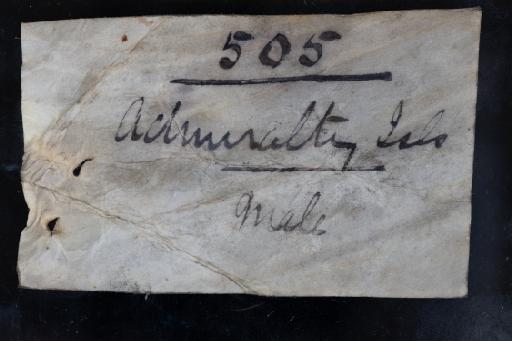 505
Admiralty Isls
Male